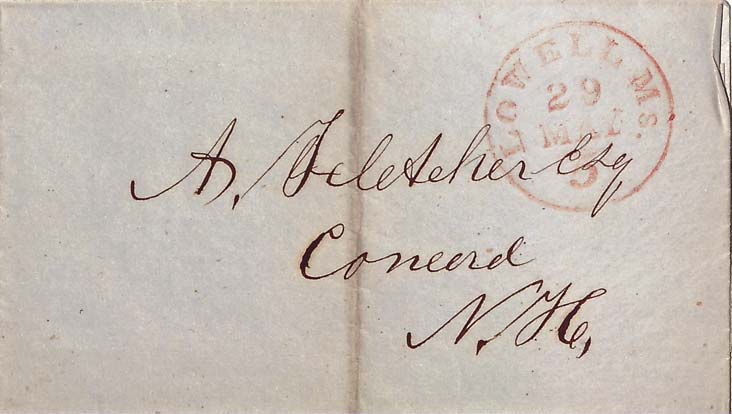 LOWELL Ms.
29
MAY
5
A. Fletcher Esq,
Concord
N. H,